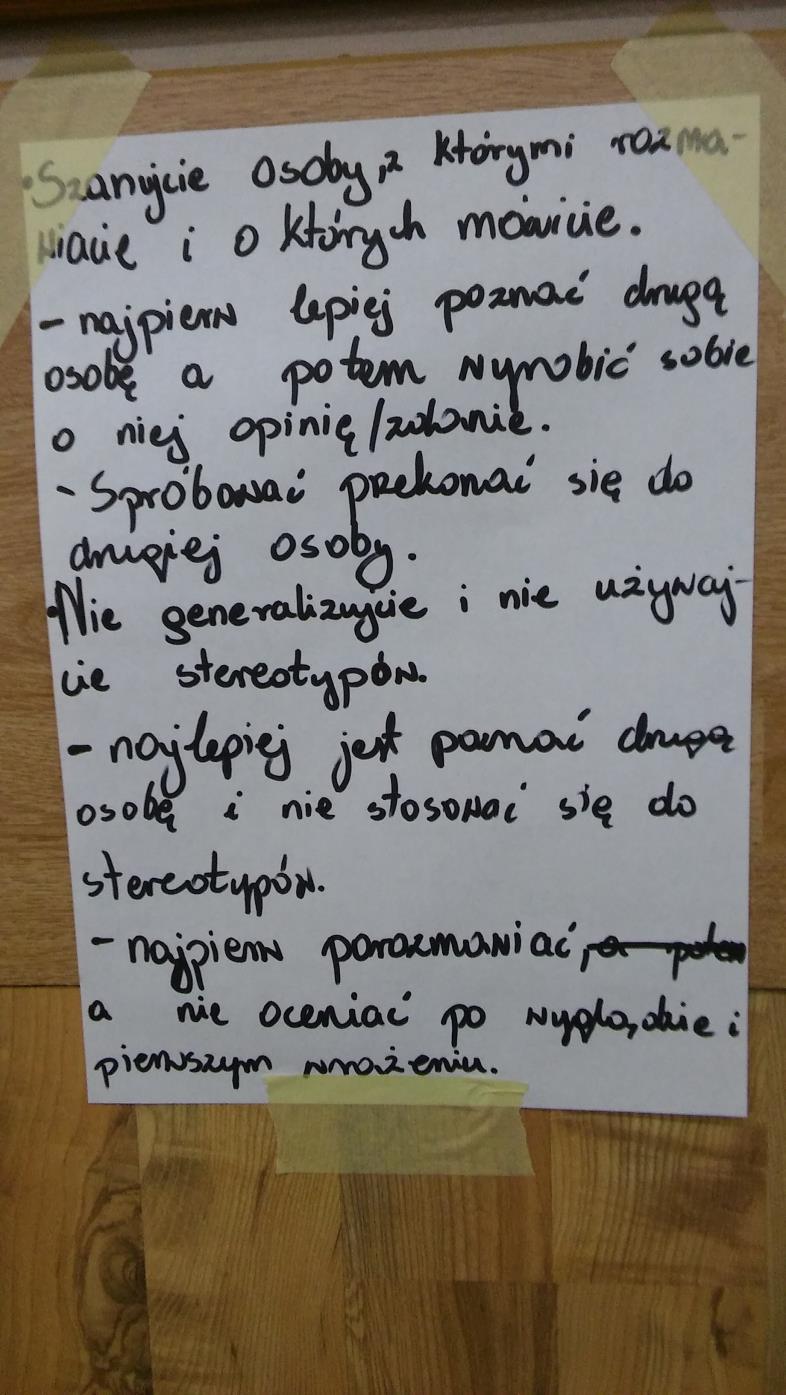 •Szanujcie osoby, z którymi rozma-
wiacie i o których mówicie.
- najpierw lepiej poznać drugą
osobę a potem wyrobić sobie
o niej opinię/zdanie.
- Spróbować przekonać się do
drugiej osoby.
•Nie generalizujcie i nie używaj-
cie stereotypów.
- najlepiej jest poznać drugą
osobę i nie stosować się do
stereotypów.
- najpierw porozmawiać, a potem
a nie oceniać po wyglądzie i
pierwszym wrażeniu.